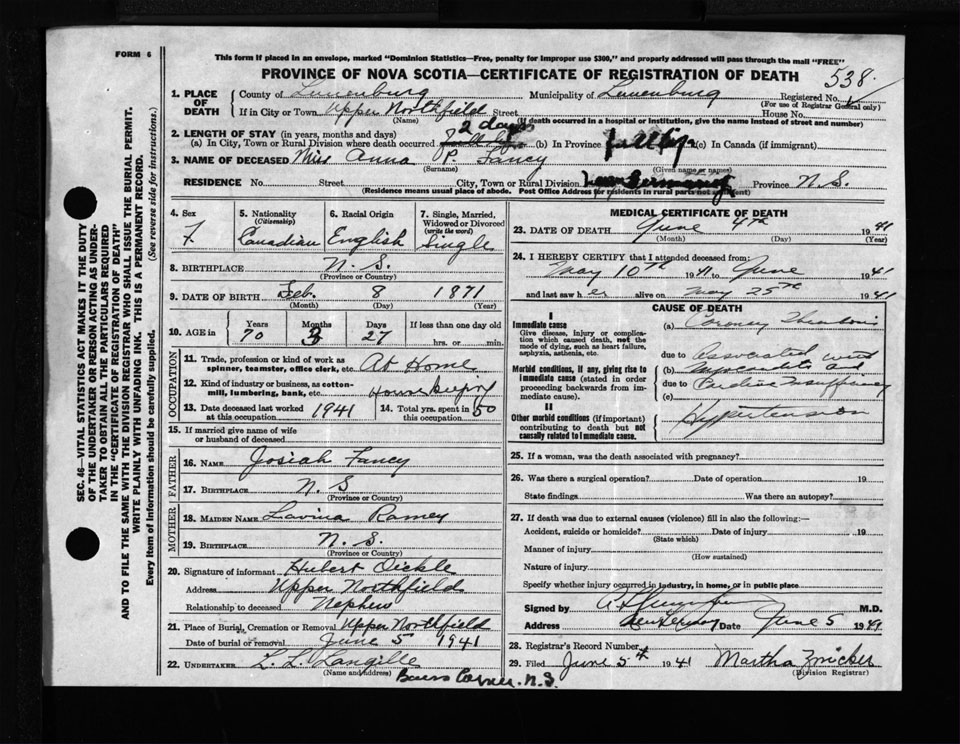 FORM 6
This form if placed in an envelope, marked "Dominion Statistics—Free, penalty for improper use $300," and properly addressed will pass through the mail "FREE"
PROVINCE OF NOVA SCOTIA—CERTIFICATE OF REGISTRATION OF DEATH
538
1. PLACE OF DEATH
County of Lunenburg Municipality of Lunenburg Registered No.
(For use of Registrar General only)
If in City or Town Upper Northfield Street House No.
(Name) (If death occurred in a hospital or institution, give the name instead of street and number)
2. LENGTH OF STAY (in years, months and days) 2 days
(a) In City, Town or Rural Division where death occurred (b) In Province full life (c) In Canada (if immigrant)
3. NAME OF DECEASED Miss Anna P. Fancy
(Surname) (Given name or names)
RESIDENCE No. Street City, Town or Rural Division New Germany Province N.S.
(Residence means usual place of abode. Post Office Address for residents in rural parts not sufficient)
4. Sex F
5. Nationality (Citizenship) Canadian
6. Racial Origin English
7. Single, Married, Widowed or Divorced (write the word) Single
8. BIRTHPLACE N.S.
(Province or Country)
9. DATE OF BIRTH Feb. 8 1871
(Month) (Day) (Year)
10. AGE in Years 70 Months 3 Days 27 If less than one day old hrs. or min.
OCCUPATION
11. Trade, profession or kind of work as spinner, teamster, office clerk, etc. At Home
12. Kind of industry or business, as cotton-mill, lumbering, bank, etc. Housekeeping
13. Date deceased last worked at this occupation 1941
14. Total yrs. spent in this occupation 50
15. If married give name of wife or husband of deceased
FATHER
16. NAME Josiah Fancy
17. BIRTHPLACE N.S
(Province or Country)
MOTHER
18. MAIDEN NAME Lavina Ramey
19. BIRTHPLACE N.S.
(Province or Country)
20. Signature of informant Hubert Oickle
Address Upper Northfield
Relationship to deceased Nephew
21. Place of Burial, Cremation or Removal Upper Northfield
Date of burial or removal June 5 1941
22. UNDERTAKER L. L. Langille
(Name and address) Corner. N.S.
MEDICAL CERTIFICATE OF DEATH
23. DATE OF DEATH June 4th 1941
(Month) (Day) (Year)
24. I HEREBY CERTIFY that I attended deceased from:
May 10th 1941 to June 1941
and last saw her alive on May 25th 1941
CAUSE OF DEATH
I
Immediate cause
Give disease, injury or complication which caused death, not the mode of dying, such as heart failure, asphyxia, asthenia, etc.
(a) Coronary Thrombosis
due to
Morbid conditions, if any, giving rise to immediate cause (stated in order proceeding backwards from immediate cause)
(b) Associated with Myocarditis and
due to
(c) Cardiac Insufficiency
II
Other morbid conditions (if important) contributing to death but not causally related to immediate cause.
Hypertension
25. If a woman, was the death associated with pregnancy?
26. Was there a surgical operation? Date of operation 19
State findings Was there an autopsy?
27. If death was due to external causes (violence) fill in also the following:—
Accident, suicide or homicide? Date of injury 19
(State which)
Manner of injury
(How sustained)
Nature of injury
Specify whether injury occurred in industry, in home, or in public place
Signed by M.D.
Address New Germany Date June 5 1941
28. Registrar's Record Number
29. Filed June 5th 1941 Martha Zwicker
(Division Registrar)
SEC. 46—VITAL STATISTICS ACT MAKES IT THE DUTY
OF THE UNDERTAKER OR PERSON ACTING AS UNDERTAKER
TO OBTAIN ALL THE PARTICULARS REQUIRED
IN THE "CERTIFICATE OF REGISTRATION OF DEATH"
AND TO FILE THE SAME WITH THE DIVISION REGISTRAR WHO SHALL ISSUE THE BURIAL PERMIT.
WRITE PLAINLY WITH UNFADING INK. THIS IS A PERMANENT RECORD.
Every item of Information should be carefully supplied. (See reverse side for instructions.)